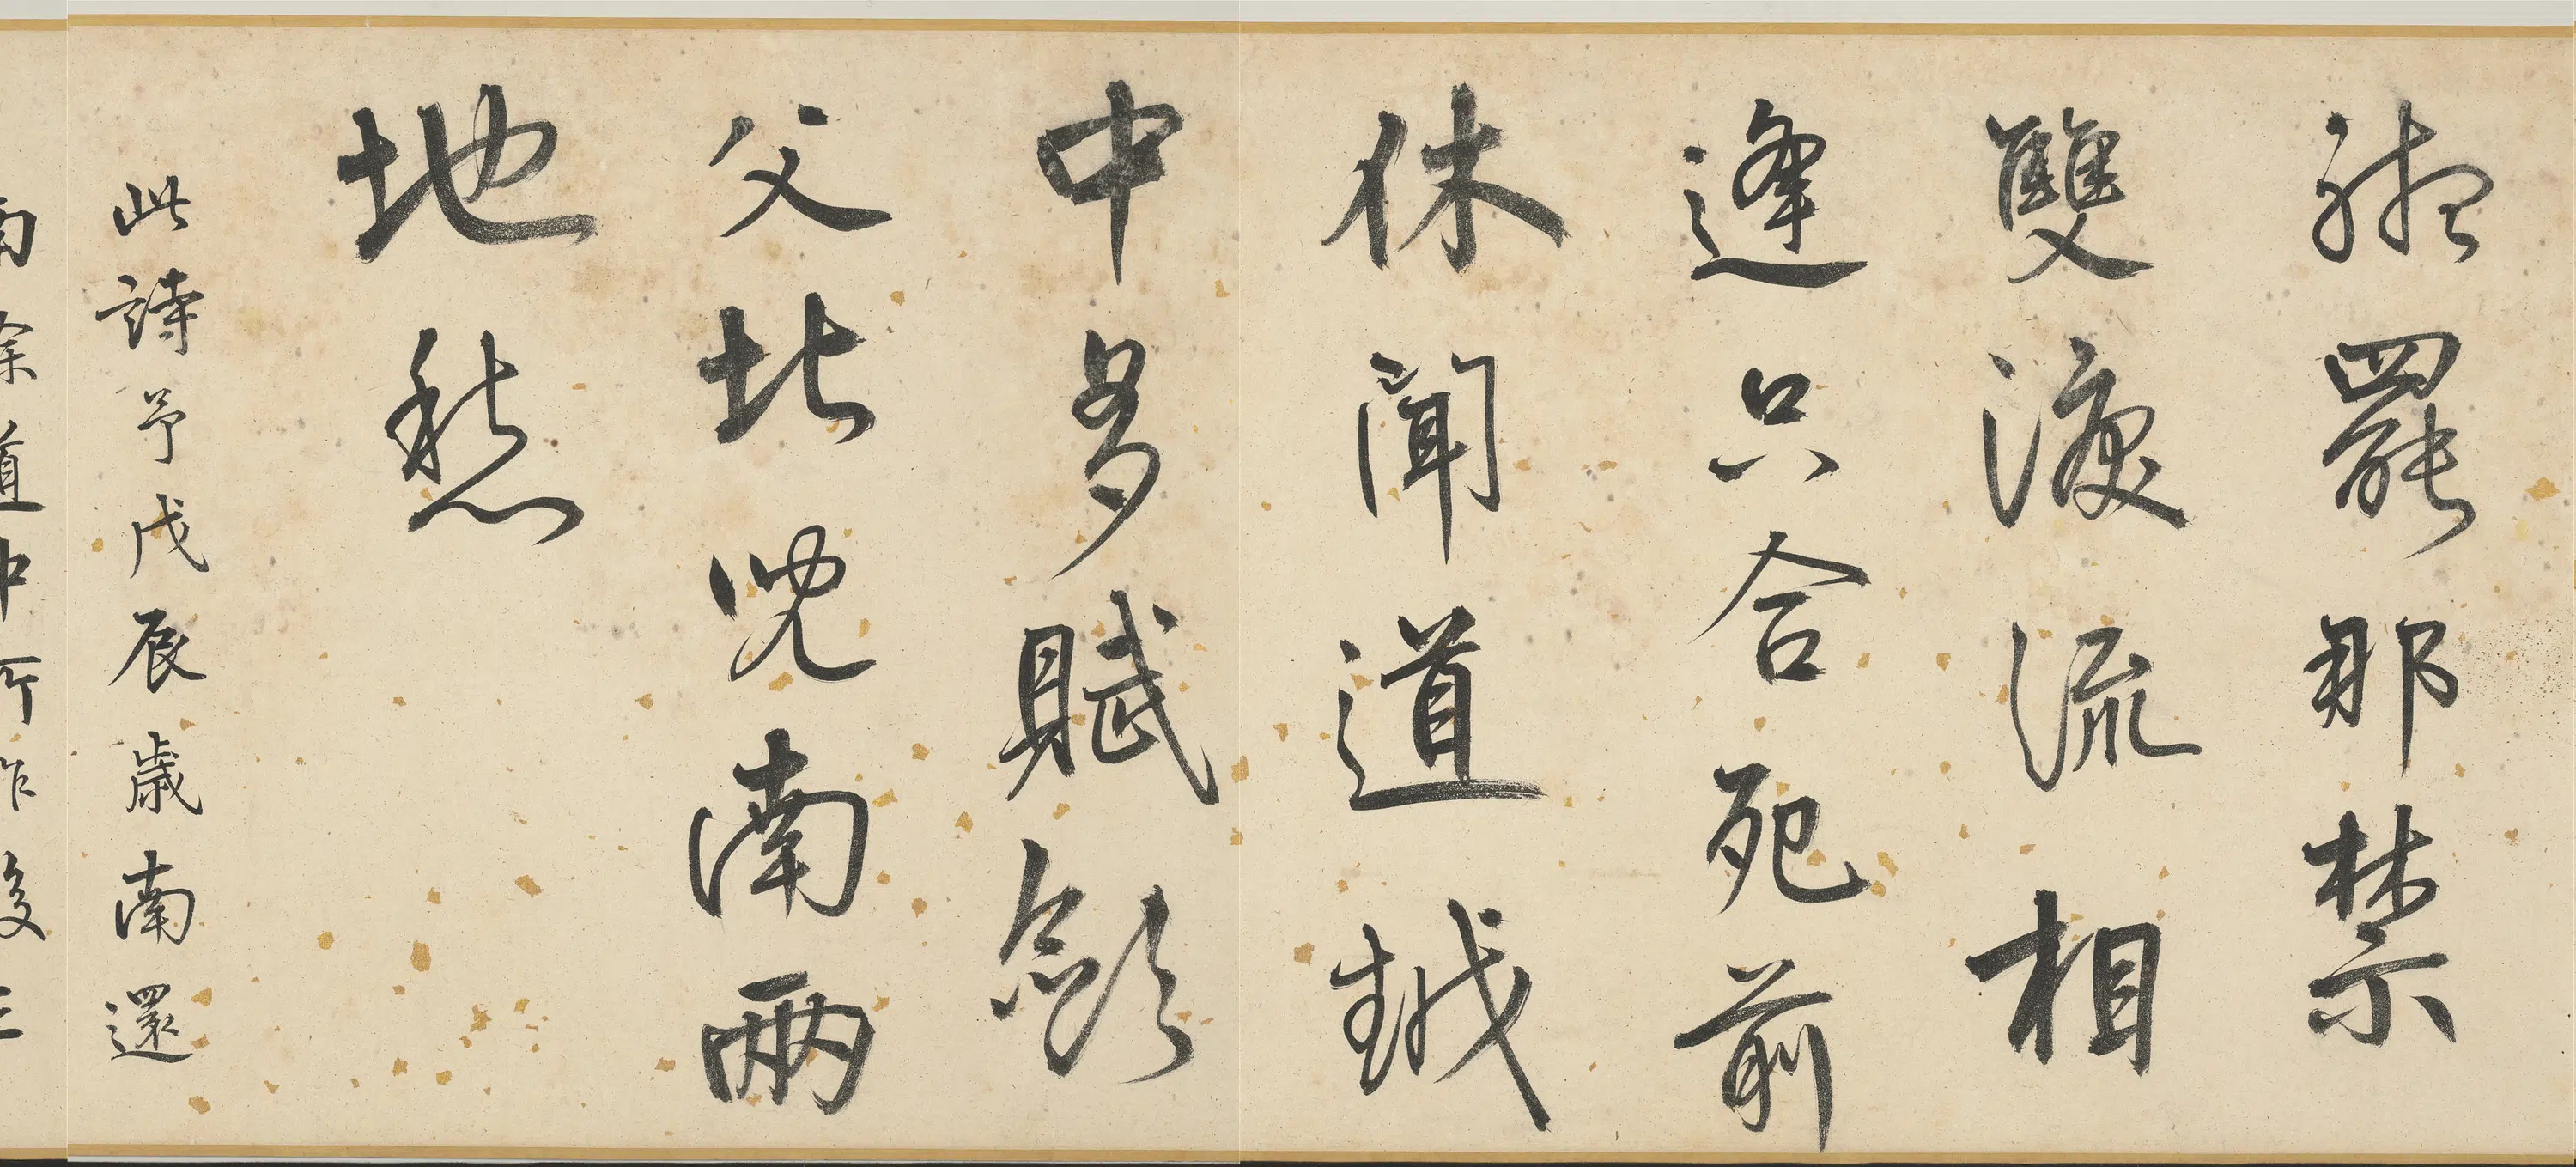 聽罷那禁
雙淚流相
逢只合死前
休聞道越
中多賦斂
父北兒南兩
地愁
此詩予戊辰歲南還
道中所作後